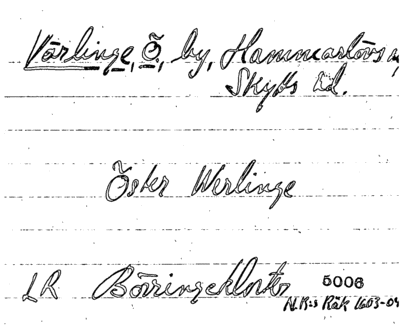 Värlinge, Ö, by, Hammarlövs sn,
Skytts hd.
Öster Werlinge
LR Börringekloster 5006
N.R:s Räk 1603-04